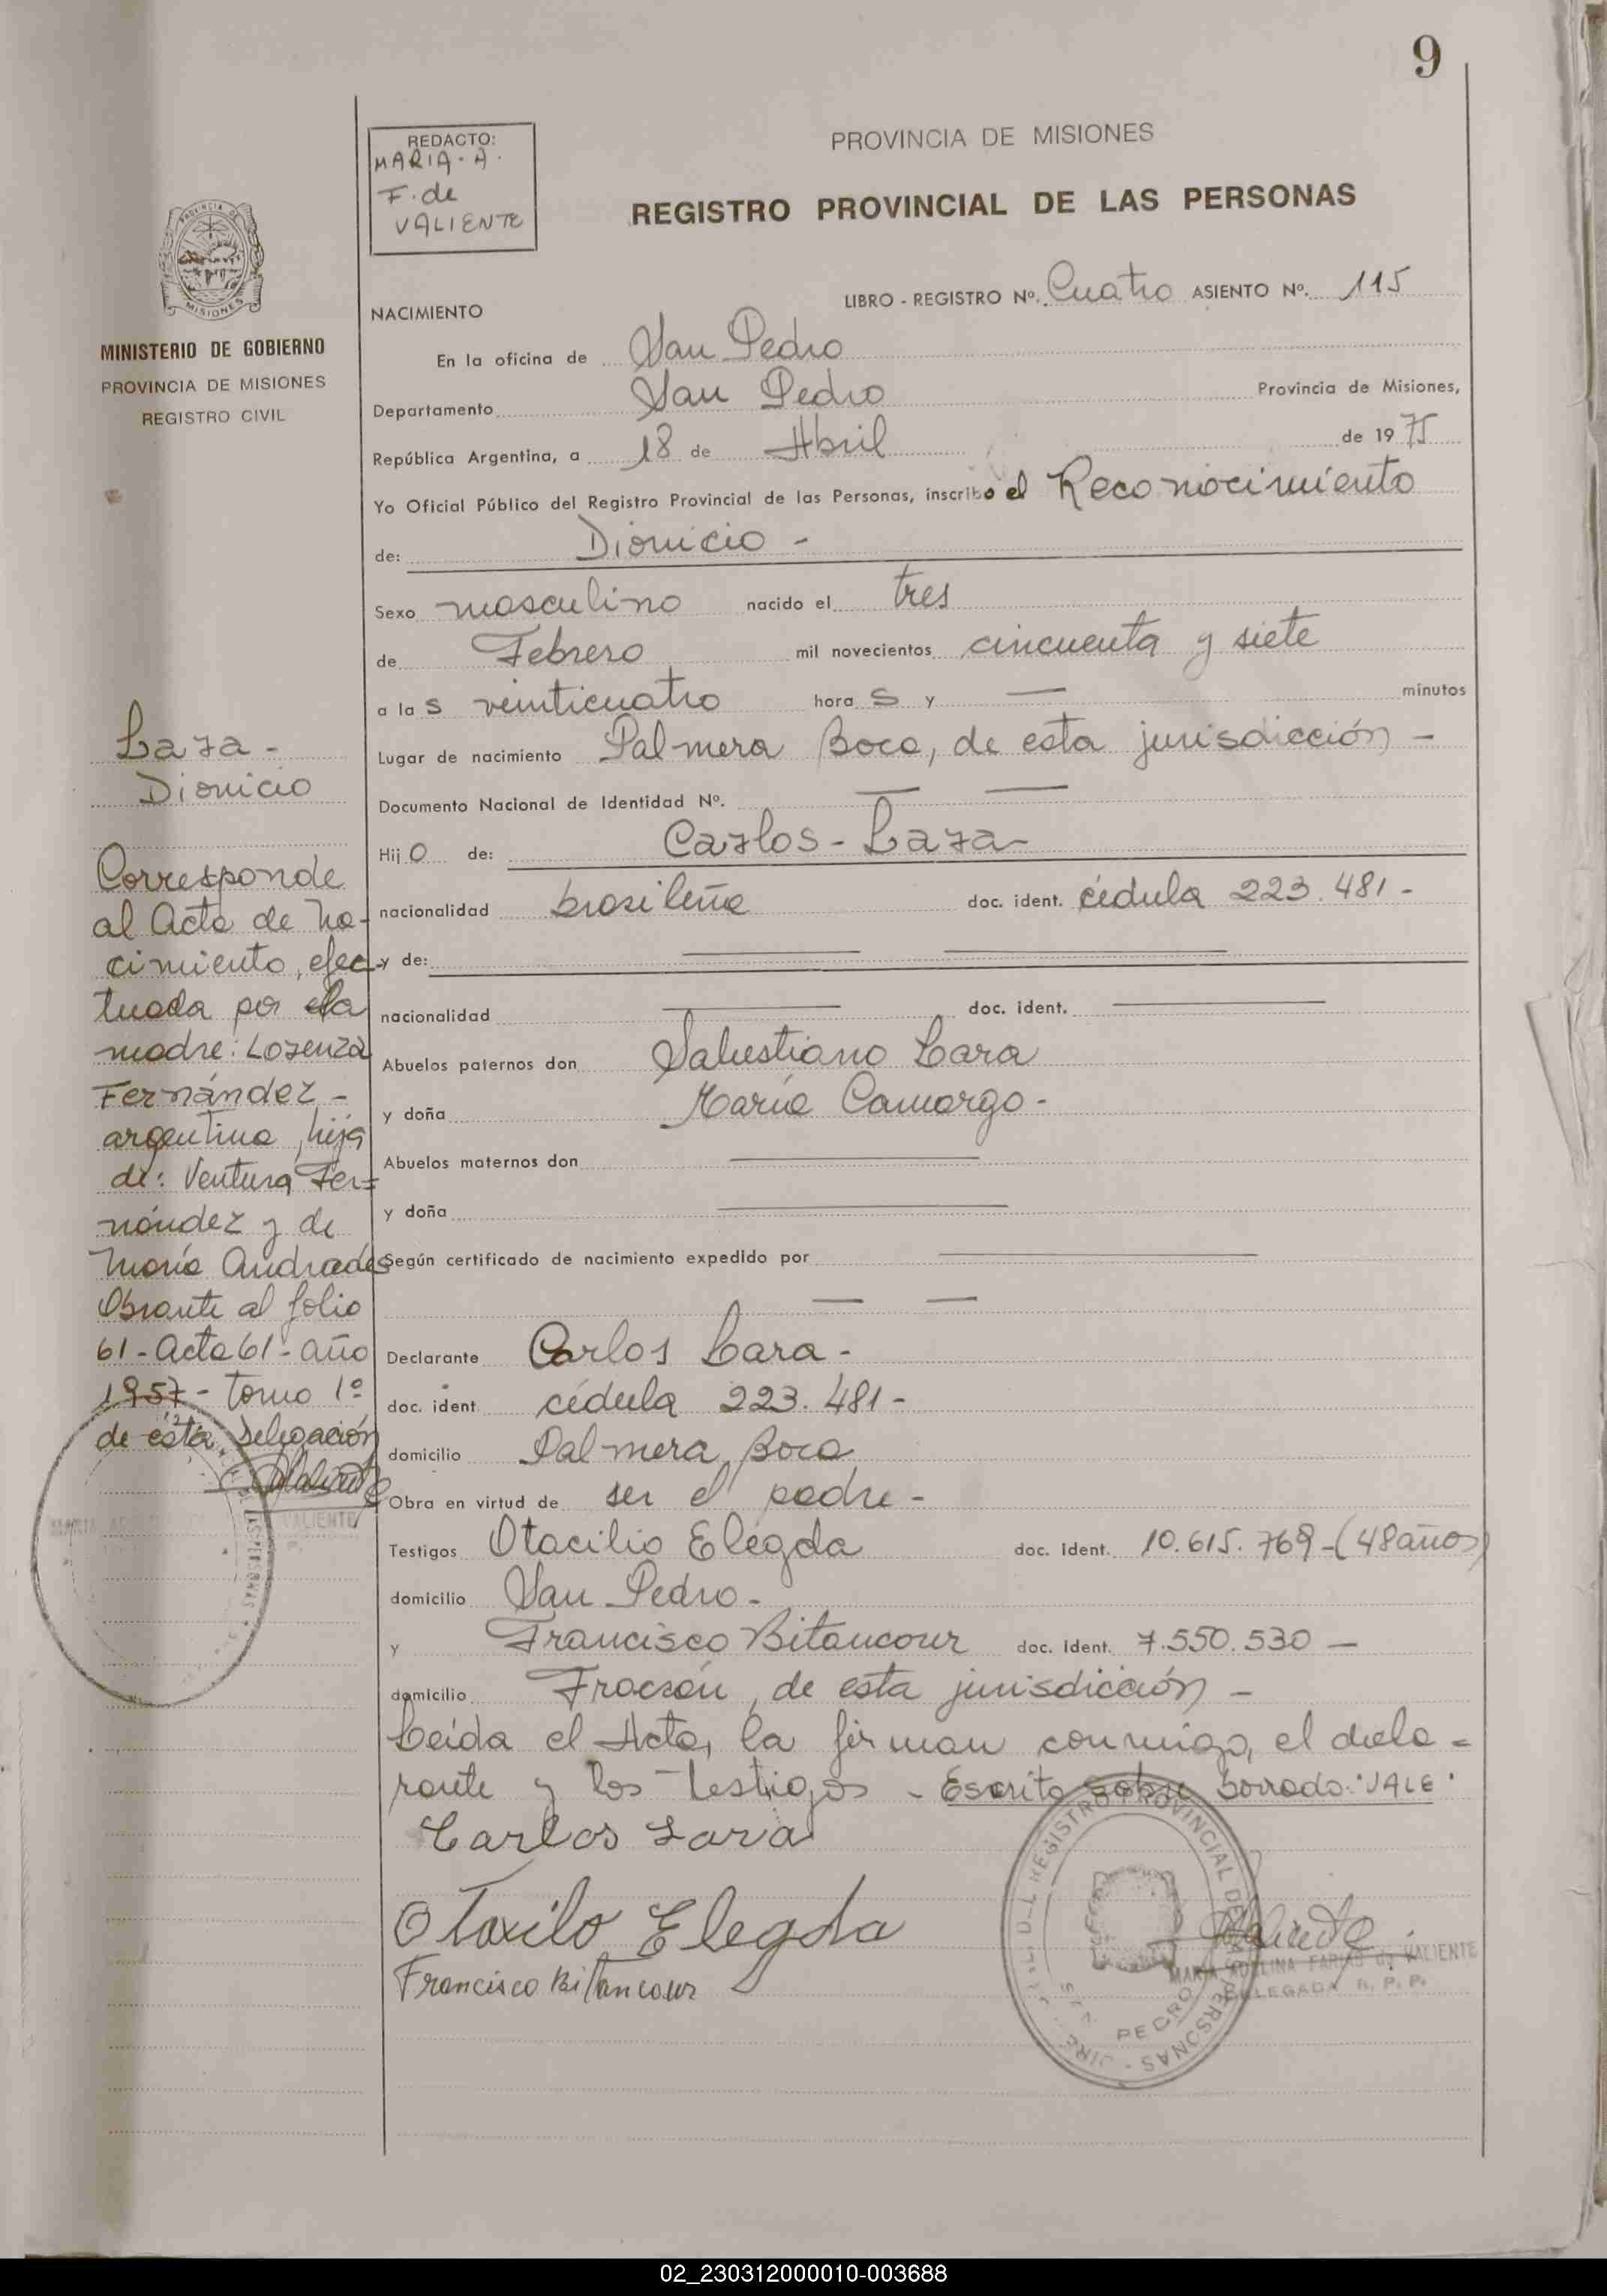 9
REDACTO:
MARIA - A.
F. de
VALIENTE
PROVINCIA DE MISIONES
REGISTRO PROVINCIAL DE LAS PERSONAS
MINISTERIO DE GOBIERNO
PROVINCIA DE MISIONES
REGISTRO CIVIL
LIBRO - REGISTRO Nº. Cuatro ASIENTO Nº. 115
NACIMIENTO
En la oficina de San Pedro
Departamento San Pedro Provincia de Misiones,
República Argentina, a 18 de Abril de 1975
Yo Oficial Público del Registro Provincial de las Personas, inscribo el Reconocimiento
de: Dionicio -
Sexo masculino nacido el tres
de Febrero mil novecientos cincuenta y siete
a las veinticuatro horas y — minutos
Lugar de nacimiento Palmera Boca, de esta jurisdicción -
Documento Nacional de Identidad Nº. — —
Hijo de: Carlos - Lara -
nacionalidad brasileña doc. ident. cédula 223.481 -
y de: — —
nacionalidad — doc. ident. —
Abuelos paternos don Salustiano Lara
y doña María Camargo -
Abuelos maternos don —
y doña —
Según certificado de nacimiento expedido por —
— —
Declarante Carlos Lara -
doc. ident cédula 223.481 -
domicilio Palmera Boca
Obra en virtud de ser el padre -
Testigos Otacilio Elégda doc. ident. 10.615.769 - (48 años)
domicilio San Pedro -
y Francisco Bitancour doc. ident. 7.550.530 —
domicilio Fracrán, de esta jurisdicción -
Leída el Acta, la firman conmigo, el decla=
rante y los testigos - Escrito sobre borrado: "VALE"
Carlos Lara
Otaxilo Elegda
Francisco Bitancour
MARIA ADELINA FARIAS de VALIENTE
DELEGADA R. P. P.
Lara -
Dionicio
Corresponde
al Acta de na-
cimiento, efec-
tuada por la
madre: Lorenza
Fernández -
argentina, hija
de: Ventura Fer=
nández y de
María Andrades
Obrante al folio
61 - Acta 61 - año
1957 - Tomo 1º
de ésta Delegación
VALIENTE
02_230312000010-003688